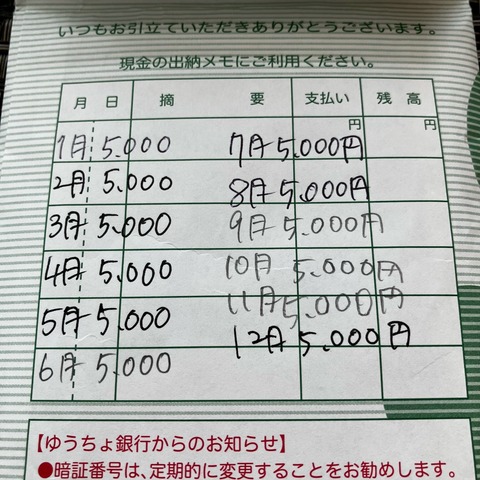 いつもお引立ていただきありがとうございます。
現金の出納メモにご利用ください。
月 日 摘 要 支払い 残 高
円 円
1月 5,000 7月 5,000円
2月 5,000 8月 5,000円
3月 5,000 9月 5,000円
4月 5,000 10月 5,000円
5月 5,000 11月 5,000円
6月 5,000 12月 5,000円
【ゆうちょ銀行からのお知らせ】
●暗証番号は、定期的に変更することをお勧めします。